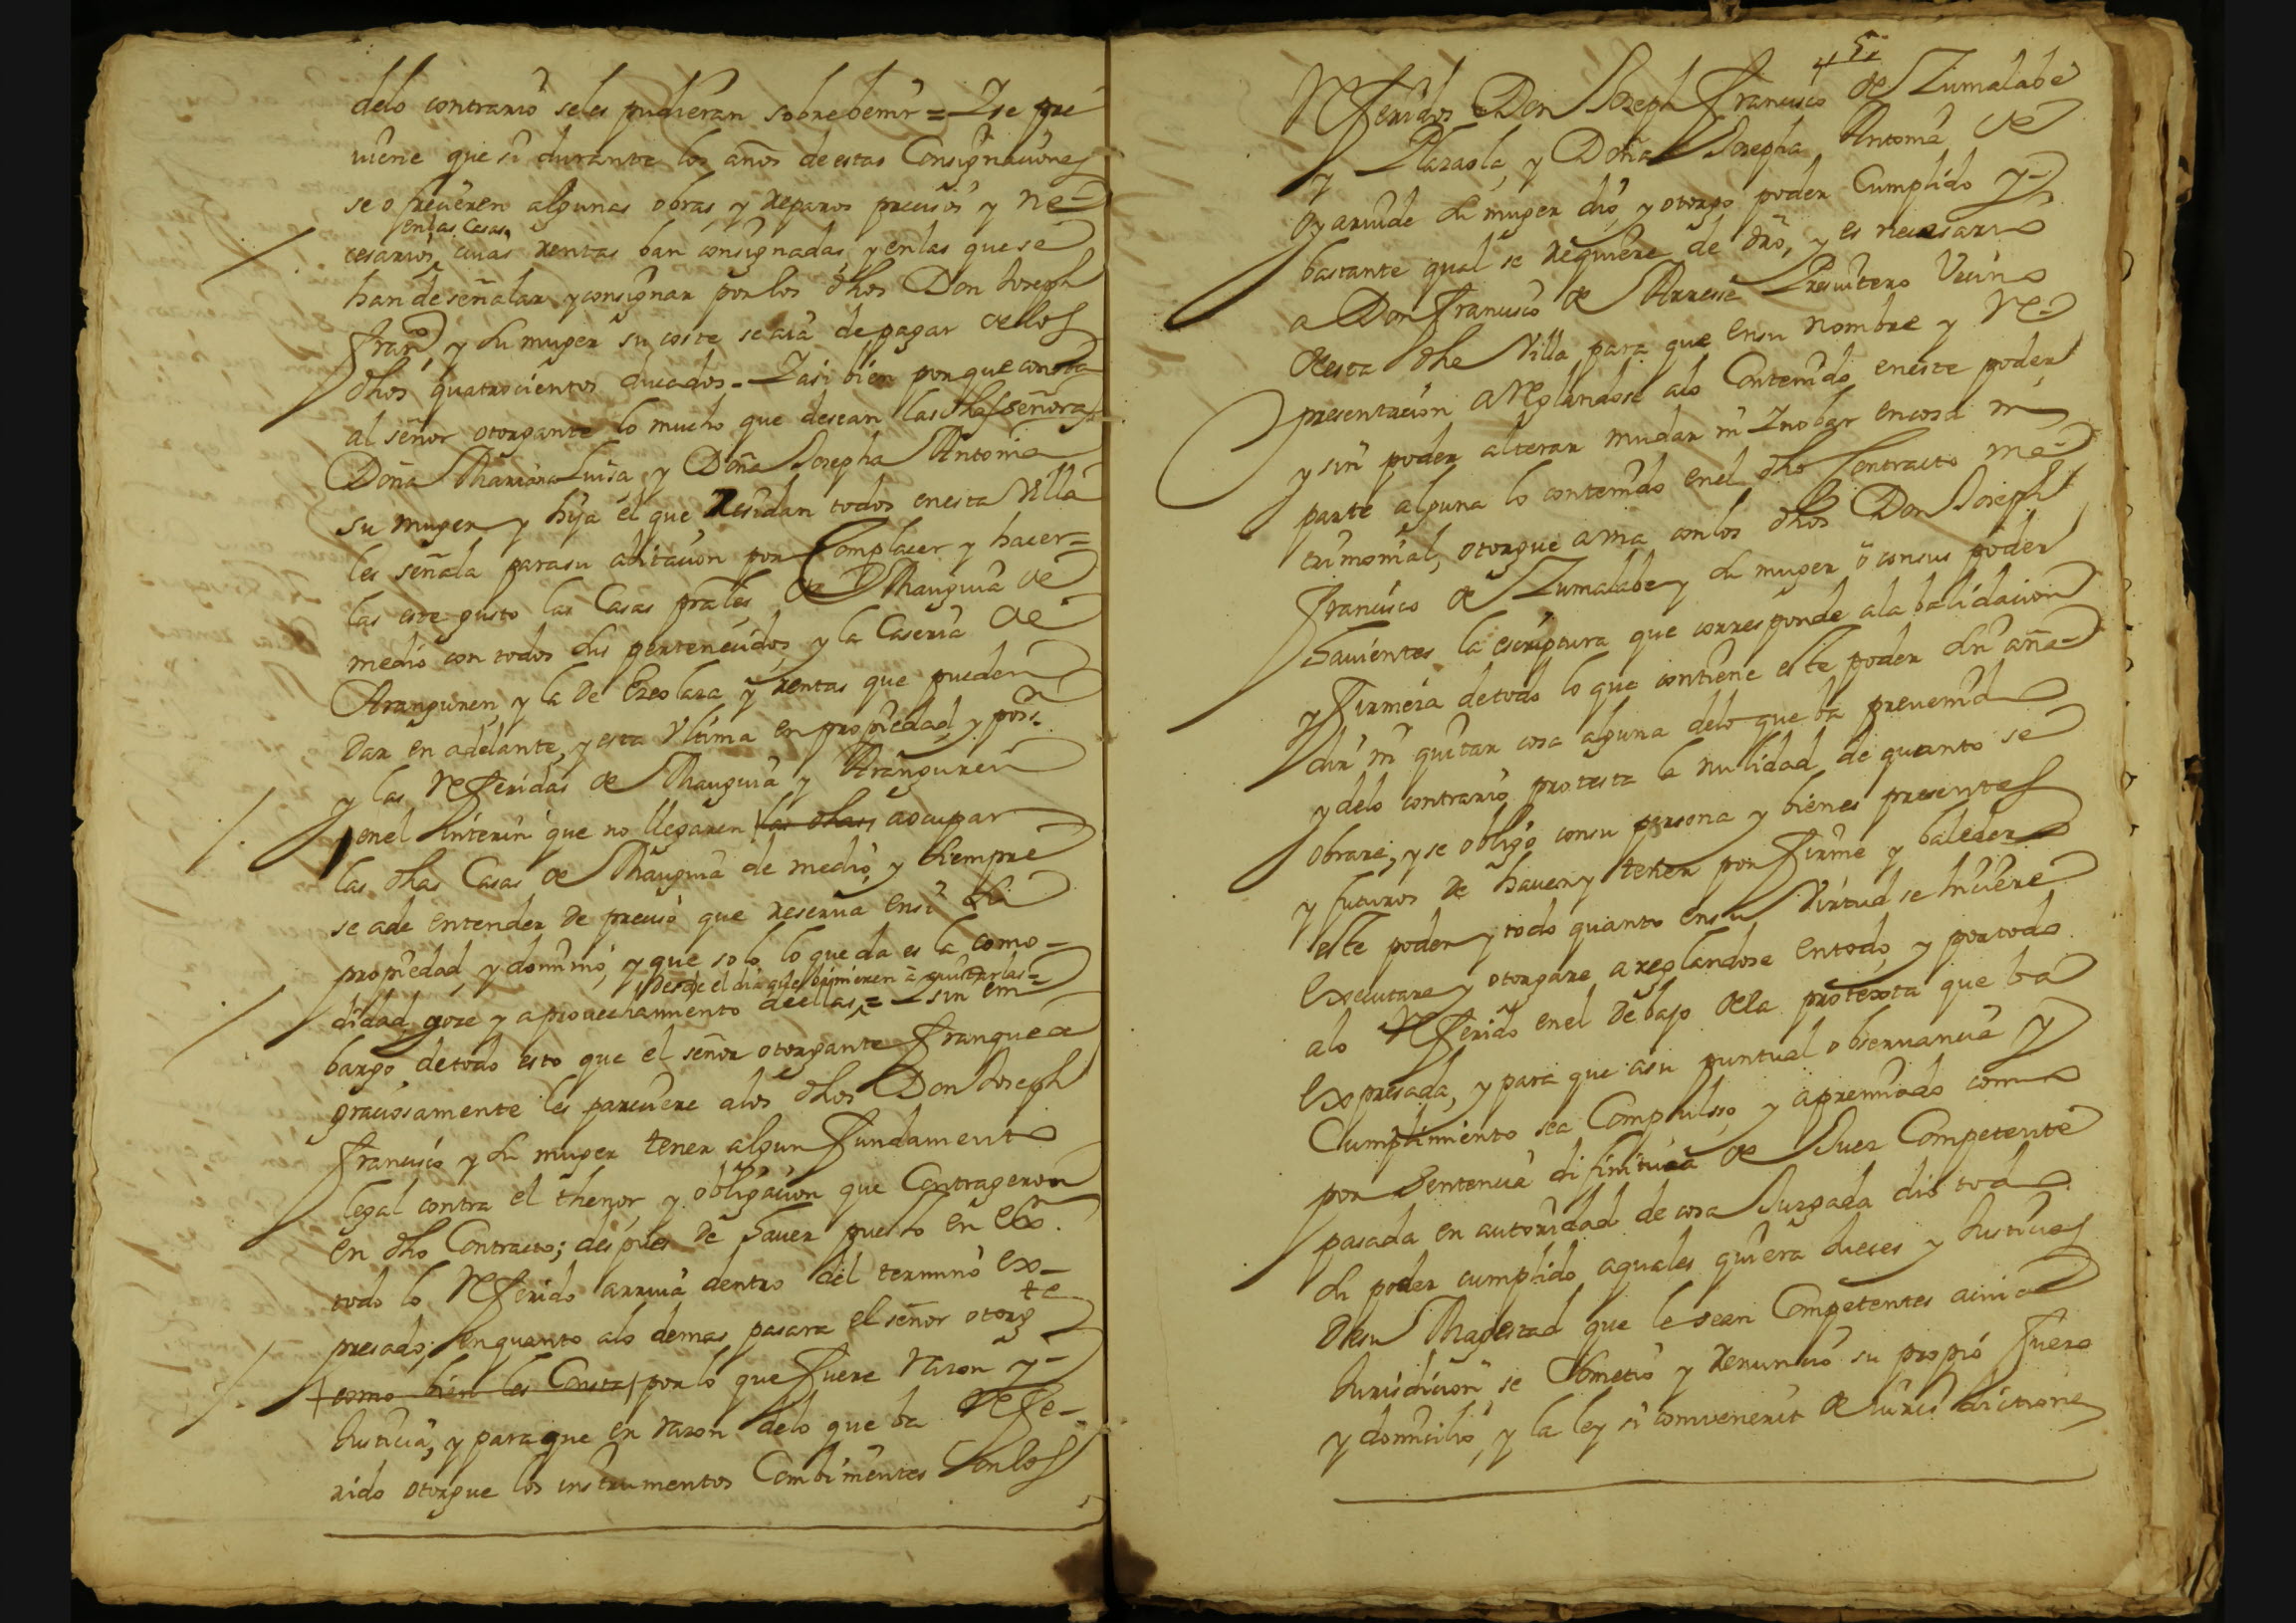 delo contrario seles pudieran sobrebenir = Y se pre
uiene que si durante los años de estas Consignaciones
se ofrecieren algunas obras y reparos precisos y ne=
en las Casas
cesarios, cuias rentas ban consignadas, y en las que se
han de señalar y consignar por los dhos Don Joseph
Franco, y su muger su coste se aia de pagar de los
dhos quatrocientos ducados = Y asi bien porque consta
al señor otorgante lo mucho que desean las dhas señoras
Doña Maria Luisa y Doña Josepha Antonia
su muger y hija el que Residan todos en esta Villa
les señala para su abitacion por Complacer y hacer=
las este gusto las Casas prales de Mauguia de
medio con todos sus pertenecidos, y la Caseria de
Aranguren y la de Ereolaza y rentas que pueden
Dar en adelante, y esta Vltima en propiedad y posn
y las Referidas de Mauguia y Aranguren
en el interin que no llegaren las dhas a ocupar
las dhas Casas de Mauguia de medio, y siempre
se ade entender de preciso que reserua en si la
propiedad, y dominio, y que solo lo que da es la como-
Desde el dia que binieren a auitarlas =
didad goze y aprouechamiento de ellas = sin em
bargo de todo esto que el señor otorgante franquea
graciosamente les pareciere alos dhos Don Joseph
Francisco y su muger tener algun fundamento
legal contra el thenor y obligacion que Contrageron
en dho Contracto; despues de hauer puesto en exn
todo lo Referido arriua dentro del termino ex-
presado; en quanto alo demas pasara el señor otorgte
como bien les Consta por lo que fuere razon y
Justicia, y para que en razon delo que ba Refe-
rido otorgue los instrumentos Combinientes Con los
51
Referidos Don Joseph Francisco de Zumalabe
y Plazaola, y Doña Josepha Antonia de
Oyaruide su muger dio, y otorgo poder Cumplido y
bastante qual se requiere de dro, y es necesario
a Don Francisco de Arresse Presuitero Vecino
desta dha Villa para que en su nombre y Re=
presentacion areglandose alo Contenido en este poder
y sin poder alterar mudar ni Ynobar en cosa ni
parte alguna lo contenido en el dho Contracto ma=
trimonial, otorgue a ma con los dhos Don Joseph
Francisco de Zumalabe y su muger o con sus poder
hauientes la escriptura que corresponde ala balidacion
y firmeza de todo lo que contiene este poder sin aña=
dir ni quitar cosa alguna delo que ba preuenido
y delo contrario protesta la nulidad de quanto se
obrare, y se obligo con su persona y bienes presentes
y futuros de hauer y tener por firme y baledero
este poder y todo quanto en su Virtud se hiciere
executare y otorgare areglandose en todo, y por todo
alo Referido en el debajo dela protexta que ba
expresada, y para que asu puntual obseruancia y
Cumplimiento sea Compulsso, y apremiado como
por Sentencia difinitiua de Juez Competente
pasada en autoridad de cosa Juzgada dio todo
su poder cumplido aquales quiera Jueces y Justicias
de su Magestad que le sean Competentes a cuia
Jurisdicion se Sometio y renuncio su propio fuero
y domicilio, y la ley si convenerit de iuris dictione